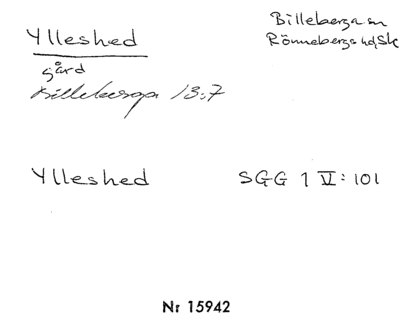 Ylleshed
Billeberga sn
Rönnebergs hd, Sk
gård
Billeberga 13:7
Ylleshed
SGG 1 V: 101
Nr 15942